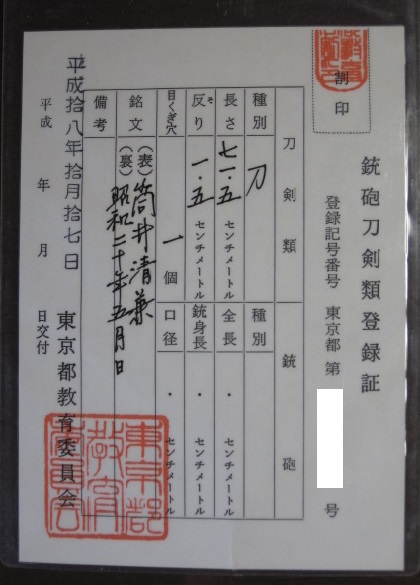 割印
銃砲刀剣類登録証
登録記号番号 東京都 第 号
刀剣類 銃砲
種別 刀 種別
長さ 七一・五 センチメートル 全長 ・ センチメートル
反り 一・五 センチメートル 銃身長 ・ センチメートル
そ
目くぎ穴 一 個 口径 ・ センチメートル
銘文 (表) 筒井清兼
(裏) 昭和二十年五月日
備考
平成拾八年拾月拾七日
平成 年 月 日交付 東京都教育委員会
東京都教育委員会